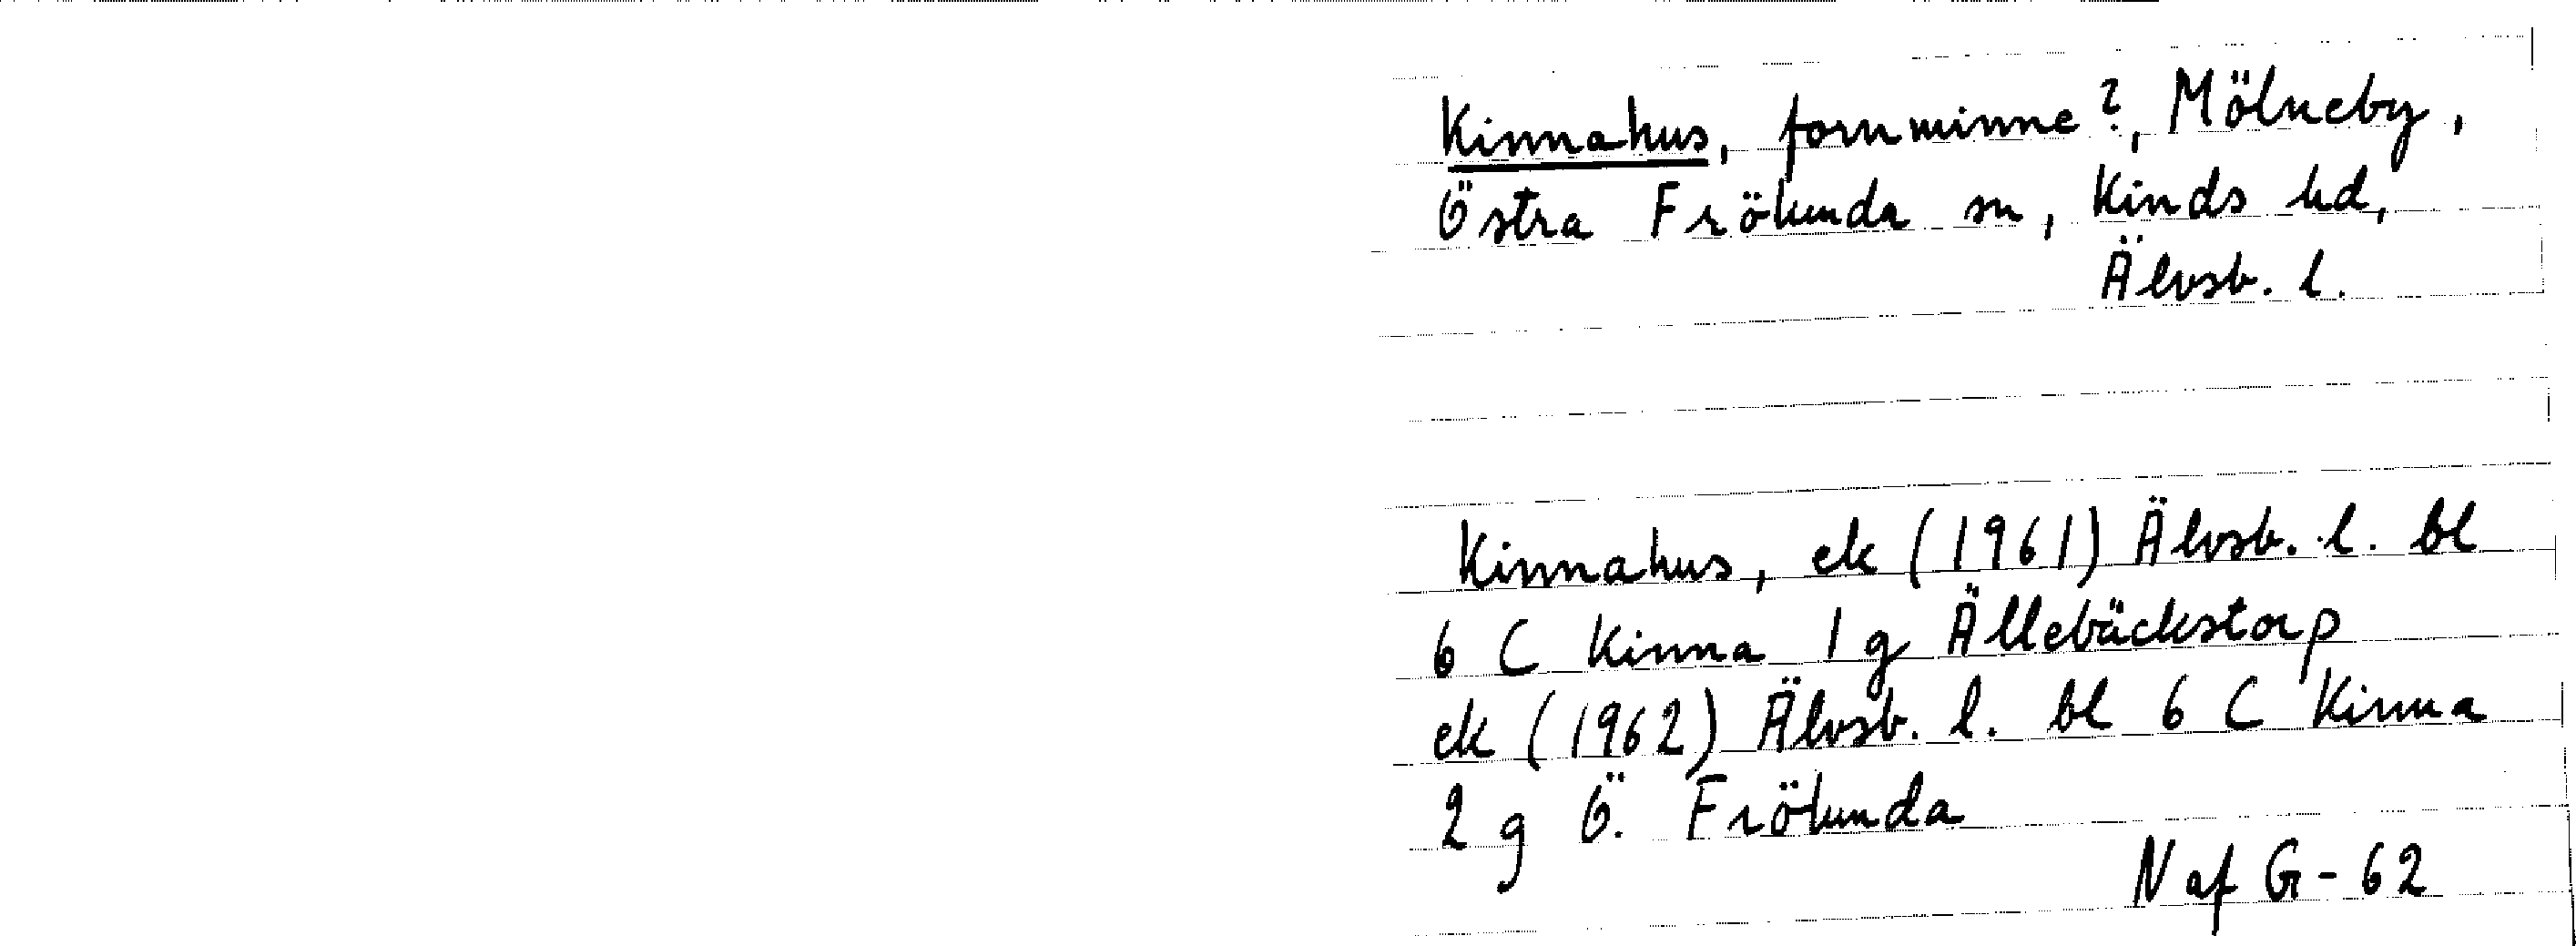 Kinnahus, fornminne?, Mölneby,
Östra Frölunda sn, Kinds hd,
Älvsb. l.
Kinnahus, ek (1961) Älvsb. l. bl
6 C Kinna 1 g Ällebäckstorp
ek (1962) Älvsb. l. bl 6 C Kinna
2 g Ö. Frölunda
N af G-62